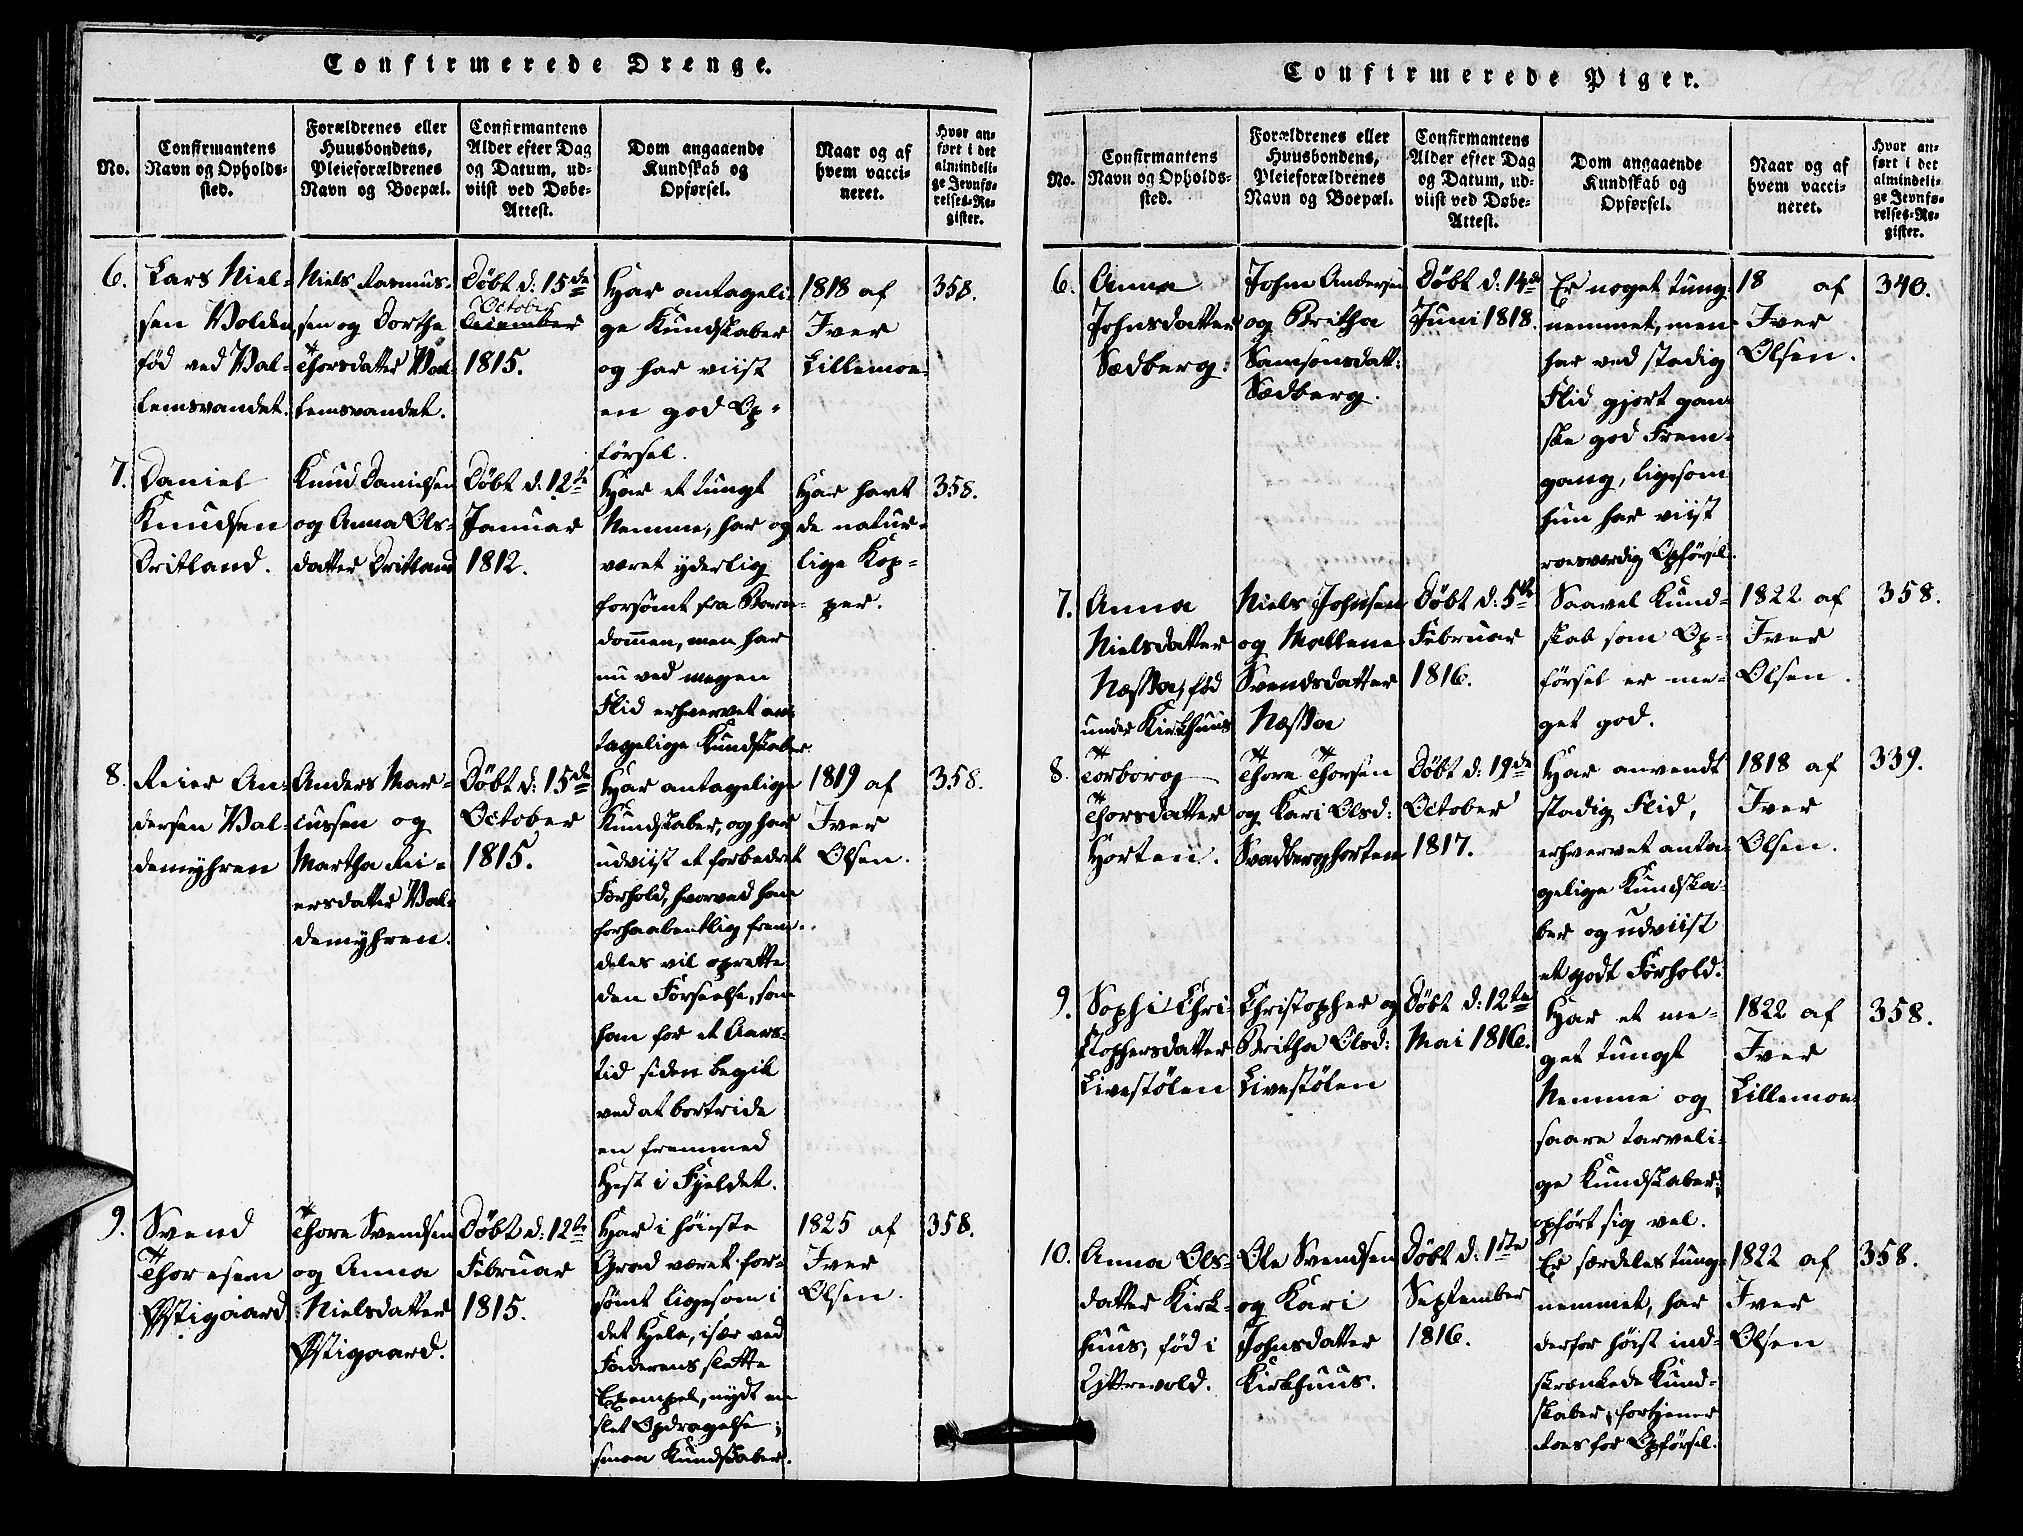 Confirmerede Drenge.
No.
Confirmantens
Navn og Opholds-
sted.
Forældrenes eller
Huusbondens,
Pleieforældrenes
Navn og Boepæl.
Confirmantens
Alder efter Dag
og Datum, ud-
viist ved Døbe-
Attest.
Dom angaaende
Kundskab og
Opførsel.
Naar og af
hvem vacci-
neret.
Hvor an-
ført i det
almindeli-
ge Jevnfø-
relses-Re-
gister.
6.
Lars Niel-
sen Volden
fød ved Val-
lemsvandet.
Niels Rasmus-
sen og Dorthe
Thorsdatter Val-
lemsvandet.
Døbt d: 15de
October
December
1815.
Har antageli-
ge Kundskaber
og har viist
en god Op-
førsel.
1818 af
Iver
Lillemoe.
358.
7.
Daniel
Knudsen
Dritland.
Knud Danielsen
og Anna Ols-
datter Dritland
Døbt d: 12te
Januar
1812.
Har et tungt
Nemme, har og
været yderlig
forsømt fra Barn-
dommen, men har
nu ved megen
Flid erhvervet an-
tagelige Kundskaber.
Har havt
de natur-
lige Kop-
per.
358.
8.
Reier An-
dersen Val-
demyhren
Anders Mar-
cussen og
Martha Rei-
ersdatter Val-
demyhren.
Døbt d: 15de
October
1815.
Har antagelige
Kundskaber, og har
udviist et forbedret
Forhold, hvorved han
forhaabentlig frem-
deles vil oprette
den Forseelse, som
han for et Aars-
tid siden begik
ved at bortride
en fremmed
Hest i Fjeldet.
1819 af
Iver
Olsen.
358.
9.
Svend
Thoresen
Østigaard
Thore Svendsen
og Anna
Nielsdatter
Østigaard.
Døbt d: 12te
Februar
1815.
Har i høieste
Grad været for-
sømt ligesom i
det Hele, især ved
Faderens slette
Exempel, nydt en
slet Opdragelse;
smaa Kundskaber.
1825 af
Iver
Olsen.
358.
Confirmerede Piger.
No.
Confirmantens
Navn og Opholds-
sted.
Forældrenes eller
Huusbondens,
Pleieforældrenes
Navn og Boepæl.
Confirmantens
Alder efter Dag
og Datum, ud-
viist ved Døbe-
Attest.
Dom angaaende
Kundskab og
Opførsel.
Naar og af
hvem vacci-
neret.
Hvor an-
ført i det
almindeli-
ge Jevnfø-
relses-Re-
gister.
6.
Anna
Johnsdatter
Sædberg:
John Andersen
og Britha
Samsonsdatt:
Sædberg.
Døbt d: 14de
Juni 1818.
Er noget tung-
nemmet, men
har ved stadig
Flid gjort gan-
ske god Frem-
gang, ligesom
hun har viist
roesværdig Opførsel.
18 af
Iver
Olsen.
340.
7.
Anna
Nielsdatter
Næssa, fød
under Kirkhuus
Niels Johnsen
og Mallene
Svendsdatter
Næssa
Døbt d: 5te
Februar
1816.
Saavel Kund-
skab som Op-
førsel er me-
get god.
1822 af
Iver
Olsen.
358.
8.
Torborg
Thorsdatter
Horten.
Thore Thorsen
og Kari Olsd:
Svadberghorten
Døbt d: 19de
October
1817.
Har anvendt
stadig Flid,
erhvervet anta-
gelige Kundska-
ber og udviist
et godt Forhold.
1818 af
Iver
Olsen.
339.
9.
Sophi Chri-
stophersdatter
Livestølen
Christopher og
Britha Olsd:
Livestølen
Døbt d: 12te
Mai 1816.
Har et me-
get tungt
Nemme og
saare tarveli-
ge Kundskaber;
opført sig vel.
1822 af
Iver
Lillemoe.
358.
10.
Anna Ols-
datter Kirk-
huus, fød i
Yttrevold.
Ole Svendsen
og Kari
Johnsdatter
Kirkhuus.
Døbt d: 1ste
September
1816.
Er særdeles tung-
nemmet, har
derfor høist ind-
skrænkede Kund-
skaber; fortjener
Roes for Opførsel.
1822 af
Iver
Olsen
358.